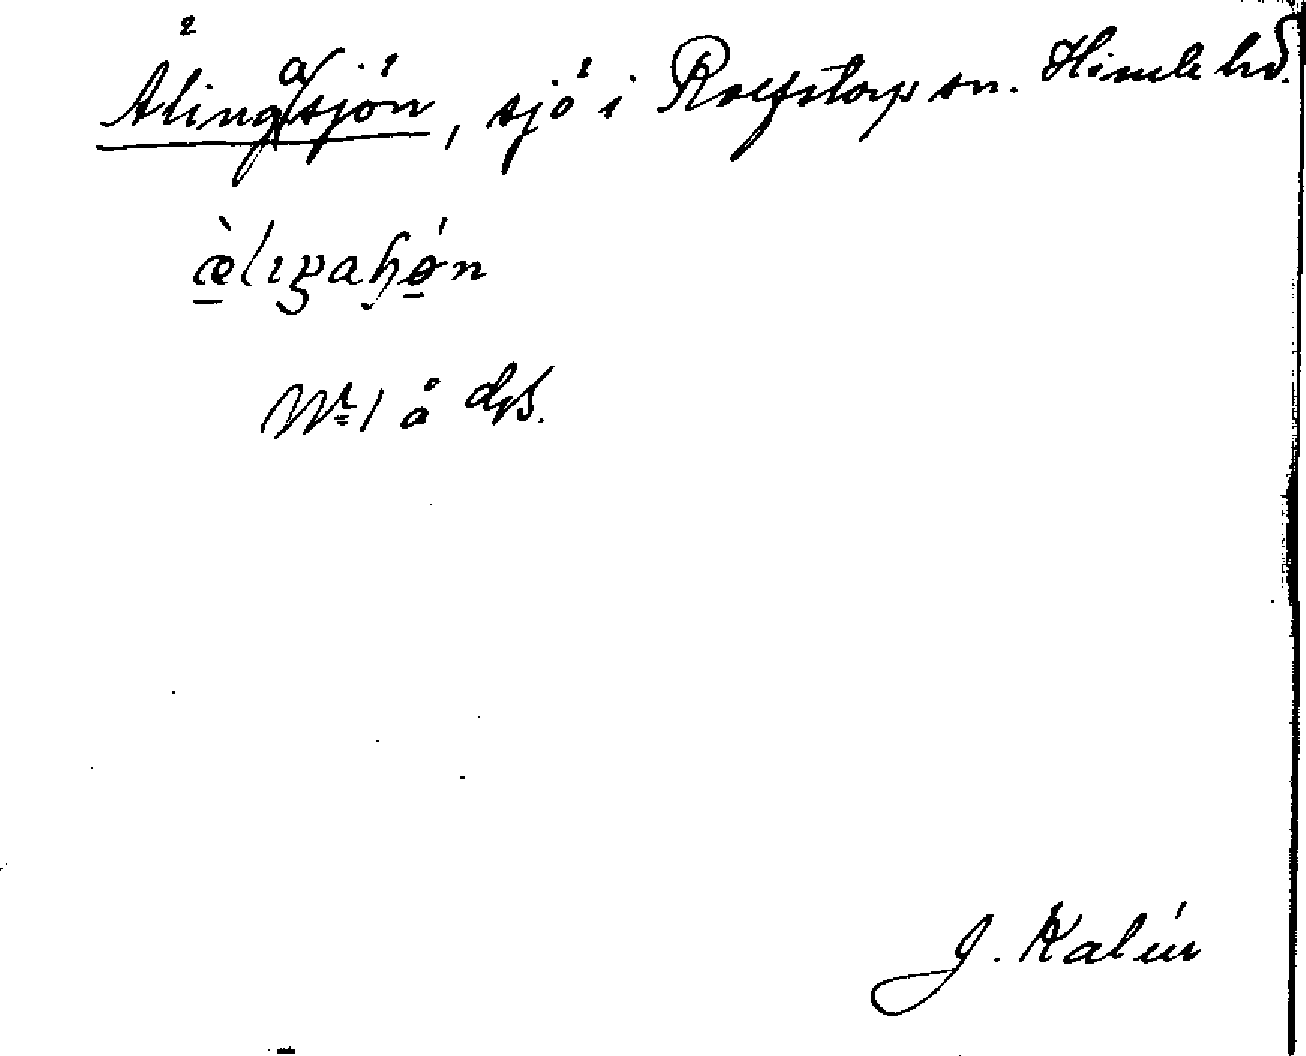 Älingasjön, sjö i Rolfstorp sn. Himle hd.
æ̀lıŋaɧø̀n
Nr 1 å
J. Kalén